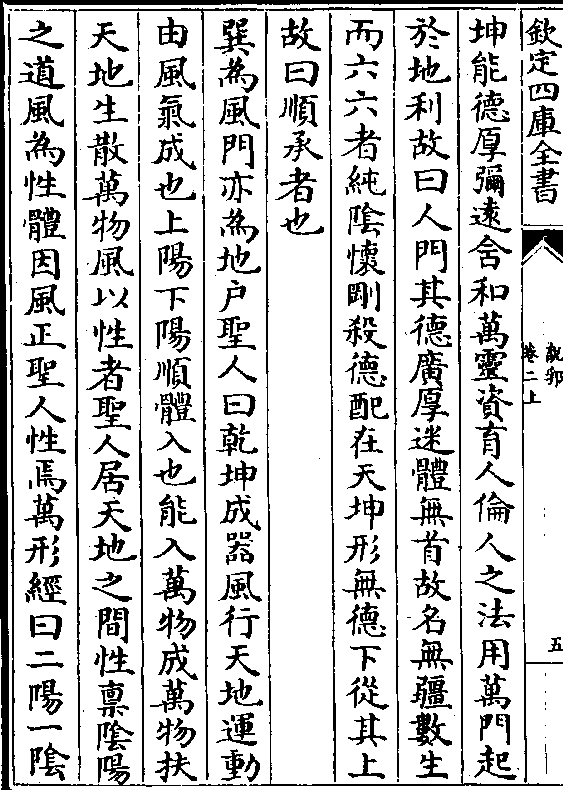 欽定四庫全書
卷二上
五
坤能德厚彌逺含和萬靈資育人倫人之法用萬門起
於地利故曰人門其德廣厚迷體無首故名無疆數生
而六六者純陰懷剛殺德配在天坤形無德下從其上
故曰順承者也
巽為風門亦為地户聖人曰乾坤成器風行天地運動
由風氣成也上陽下陽順體入也能入萬物成萬物扶
天地生散萬物風以性者聖人居天地之間性禀陰陽
之道風為性體因風正聖人性焉萬形經曰二陽一陰